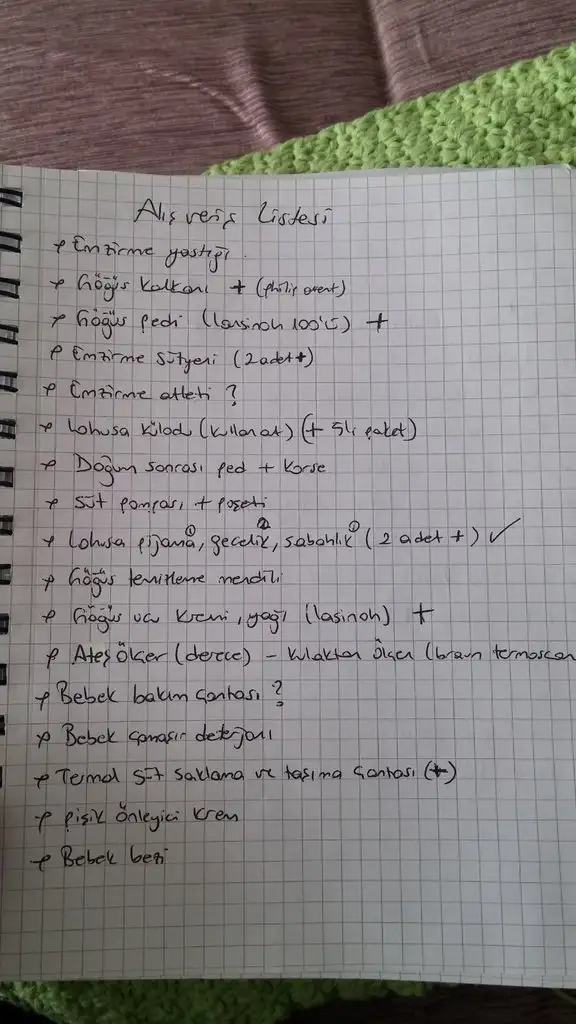 Alışveriş Listesi
* Emzirme yastığı
* Göğüs kalkanı + (philip avent)
* Göğüs pedi (lansinoh 100'lü) +
* Emzirme sütyeni (2 adet +)
* Emzirme atleti ?
* Lohusa kilodu (kullan at) (+ 5li paket)
* Doğum sonrası ped + korse
* Süt pompası + poşeti
* Lohusa pijama①, gecelik②, sabahlık① (2 adet +) ✓
* Göğüs temizleme mendili
* Göğüs ucu kremi, yağı (lasinoh) +
* Ateş Ölçer (derece) - kulaktan ölçer (braun termoscan
* Bebek bakım çantası ?
* Bebek çamaşır deterjanı
* Termal süt saklama ve taşıma çantası (+)
* pişik önleyici krem
* Bebek bezi